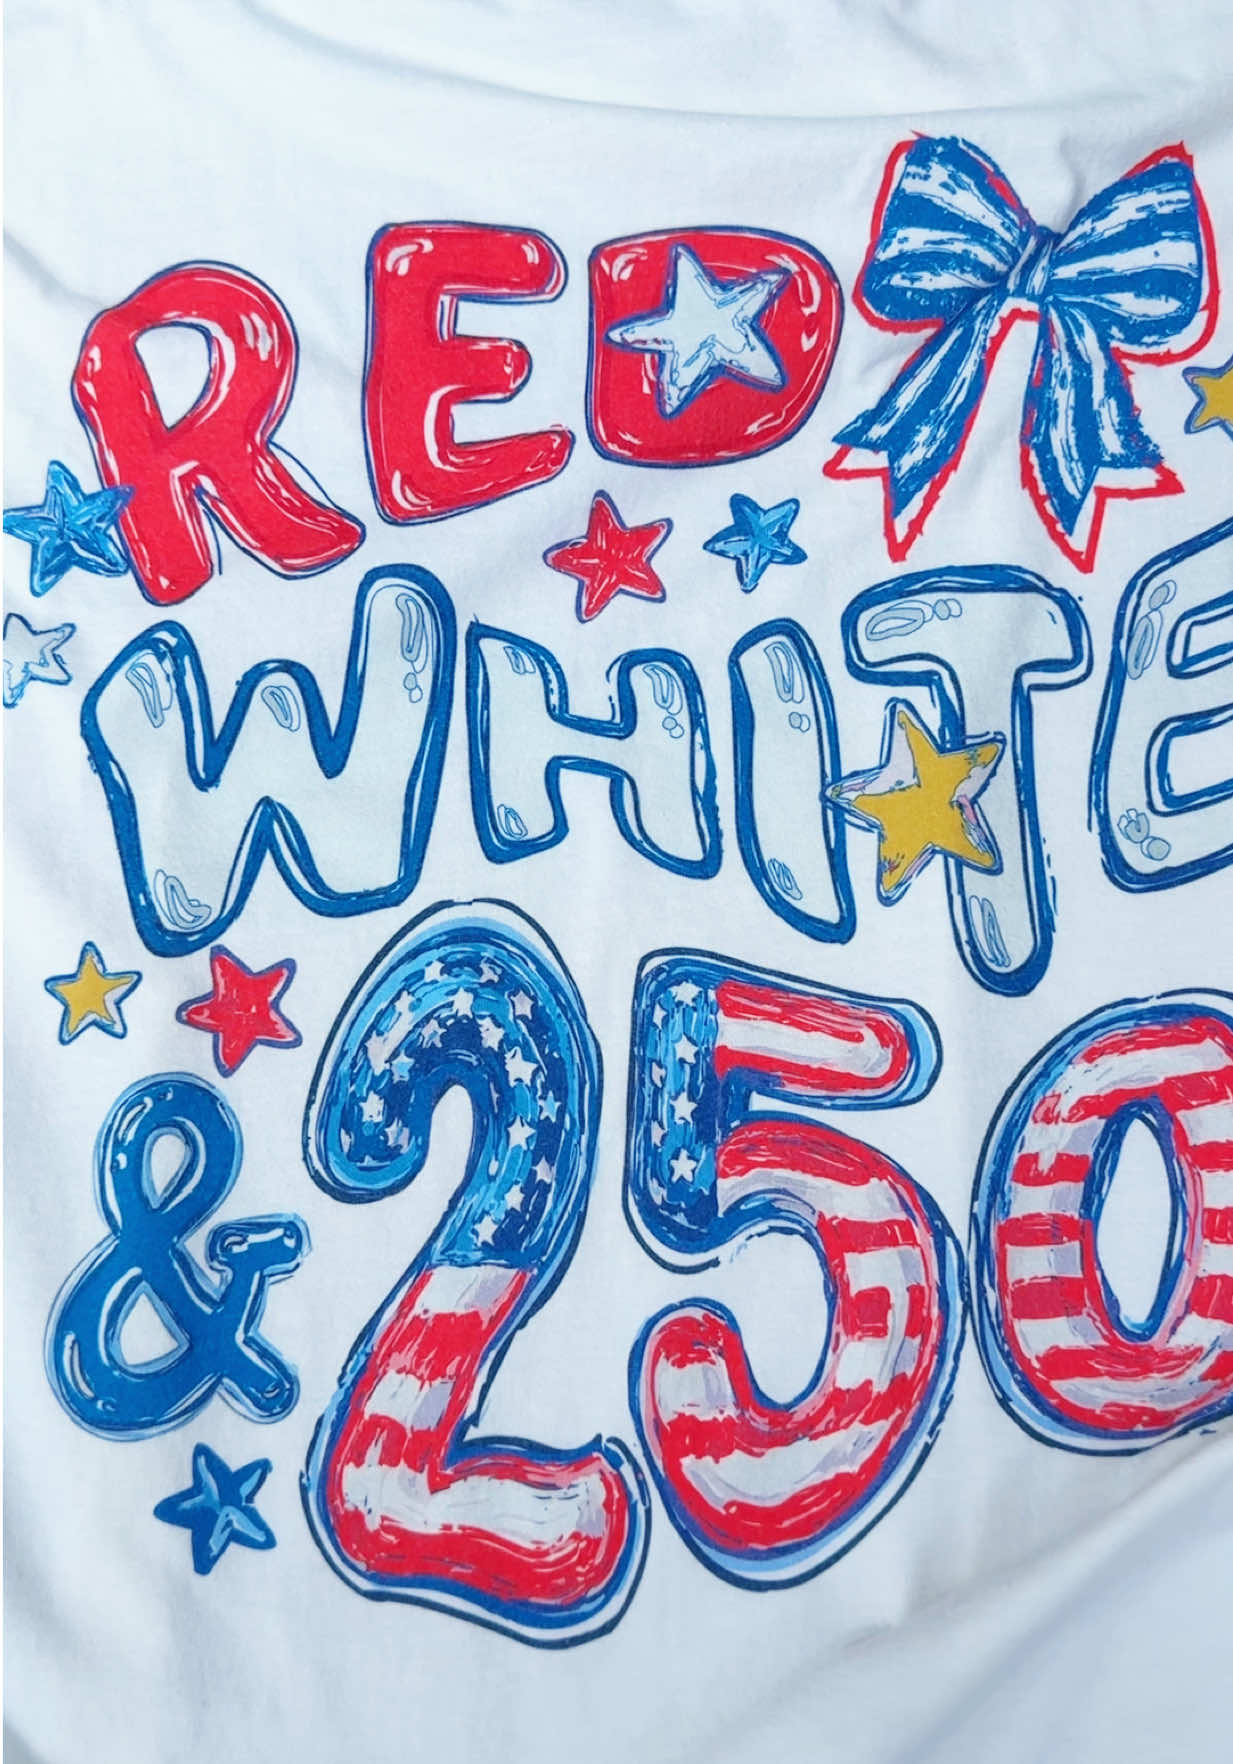 RED
WHITE
& 250